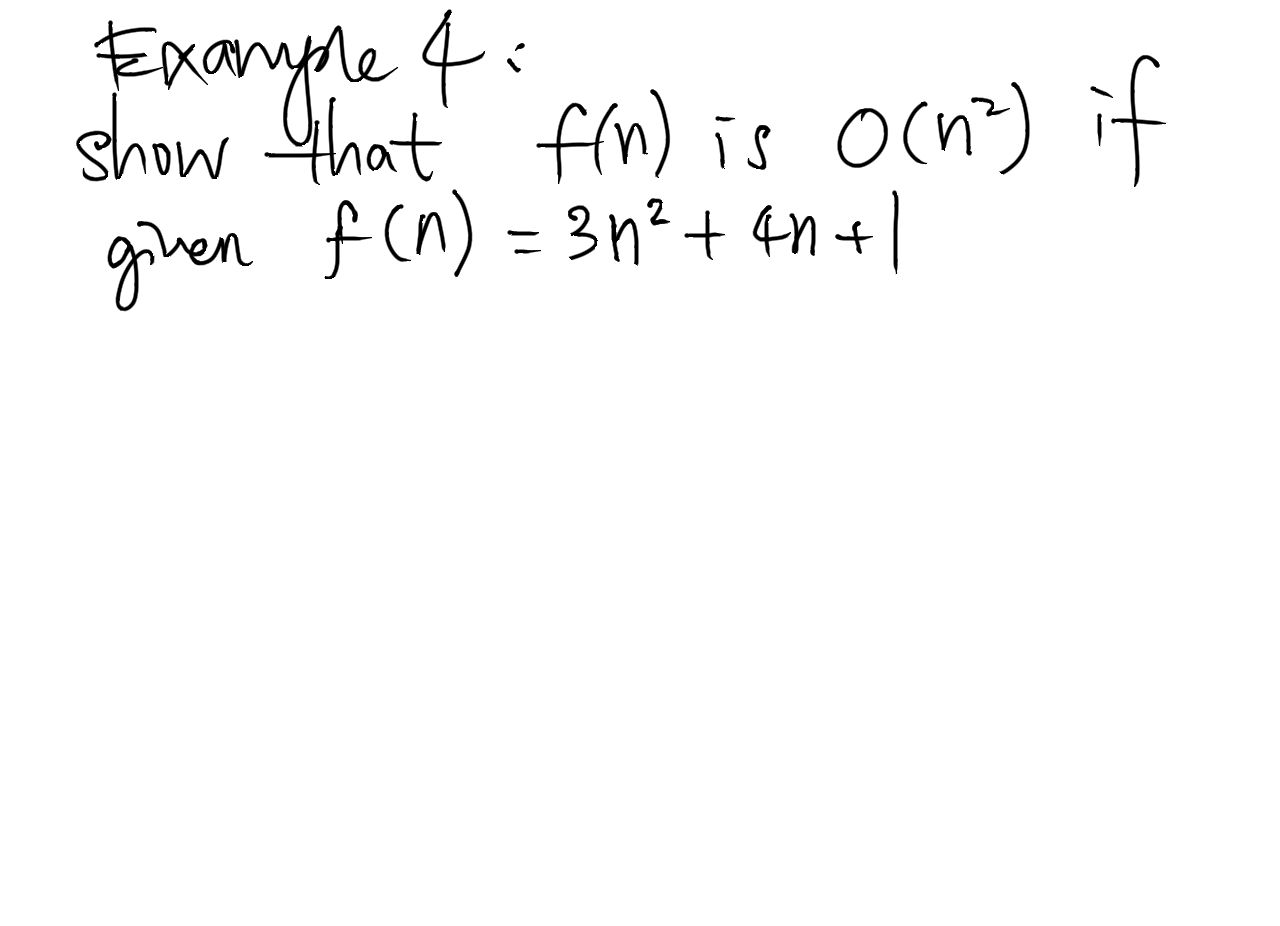 Example 4:
show that f(n) is O(n²) if
given f(n) = 3n² + 4n + 1